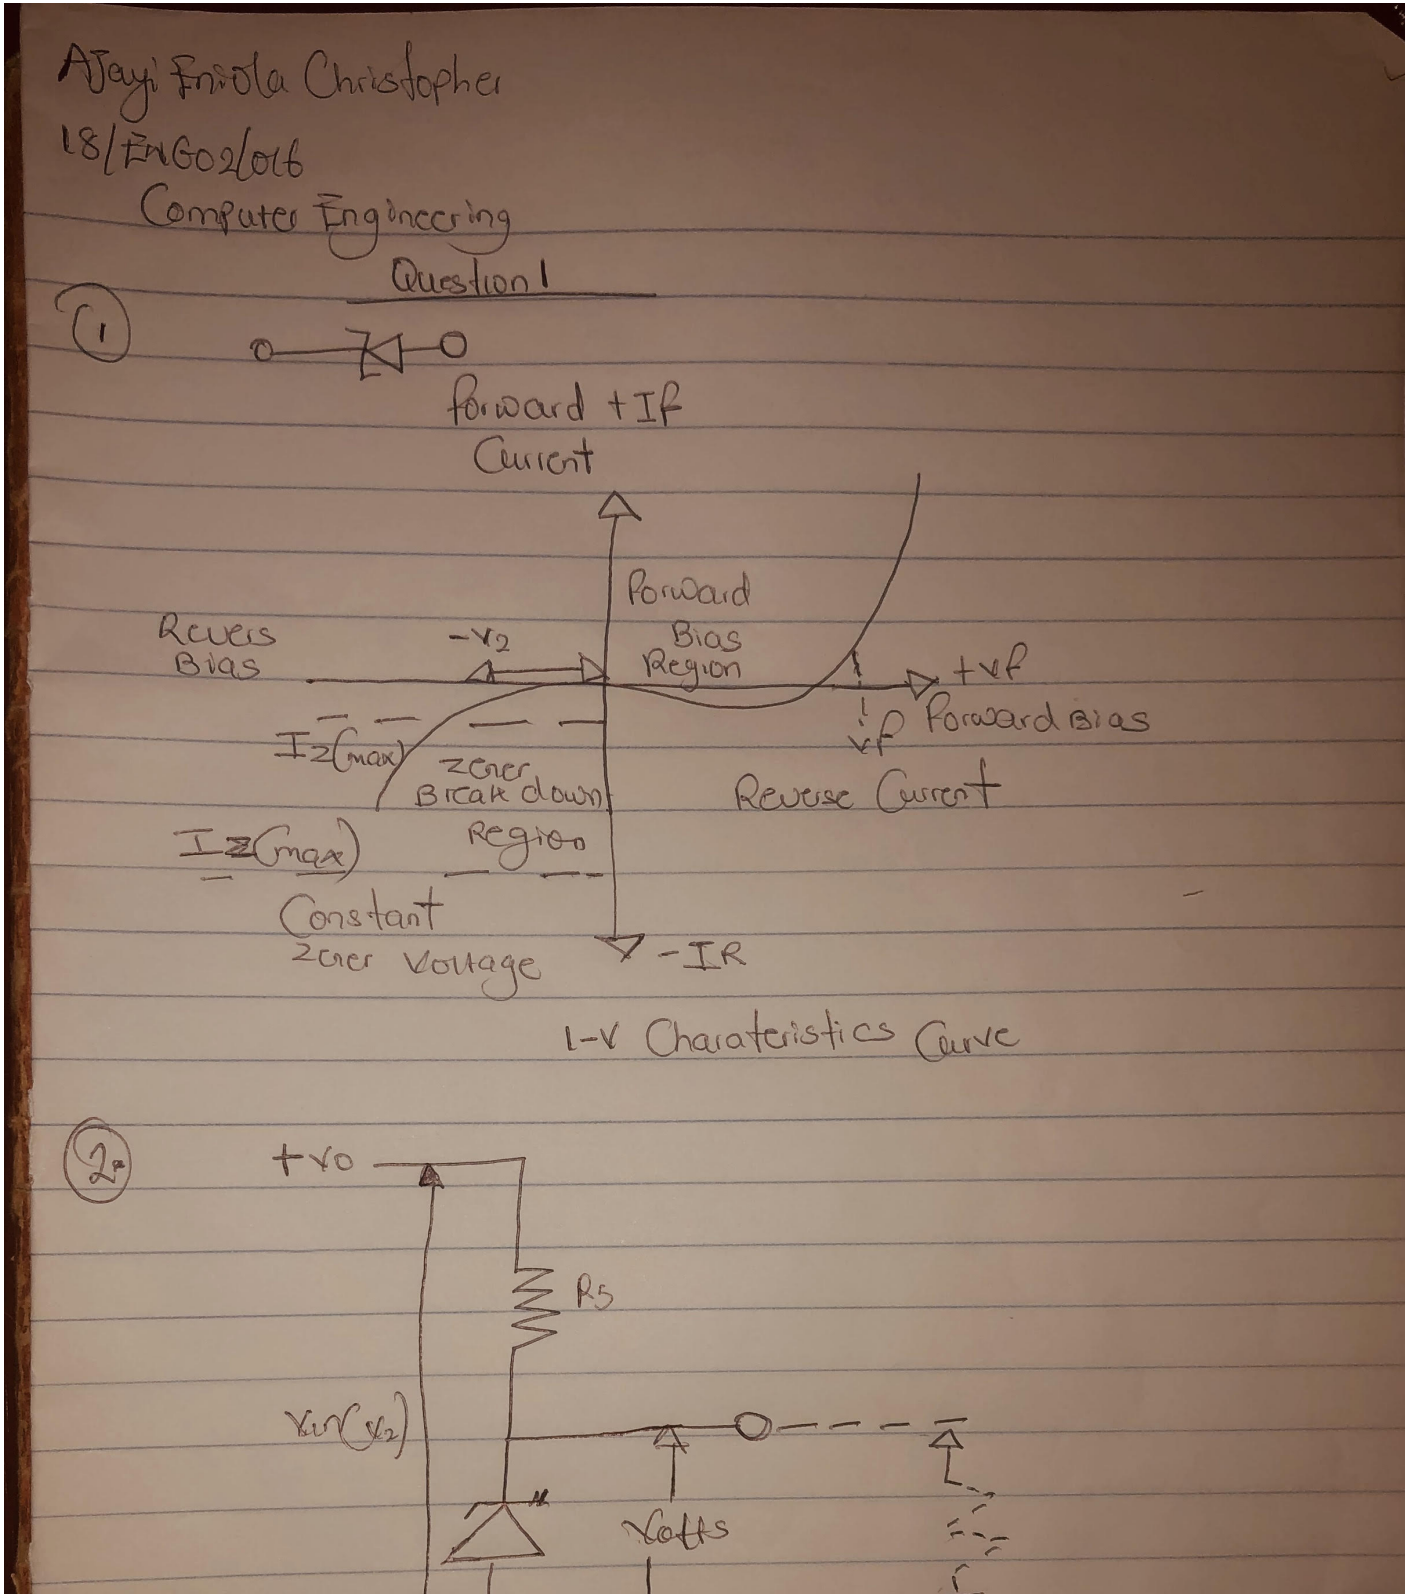 AJayi Eniola Christopher
18/ENG02/016
Computer Engineering
Question 1
1
Forward +If
Current
Forward
Revers -V2 Bias
Bias Region +vf
vf Forward Bias
Iz(max) Zener
Break down Reverse Current
Iz(max) Region
Constant
Zener Voltage -IR
I-V Charateristics Curve
2.
+vo
RS
Vin(V2)
Volts